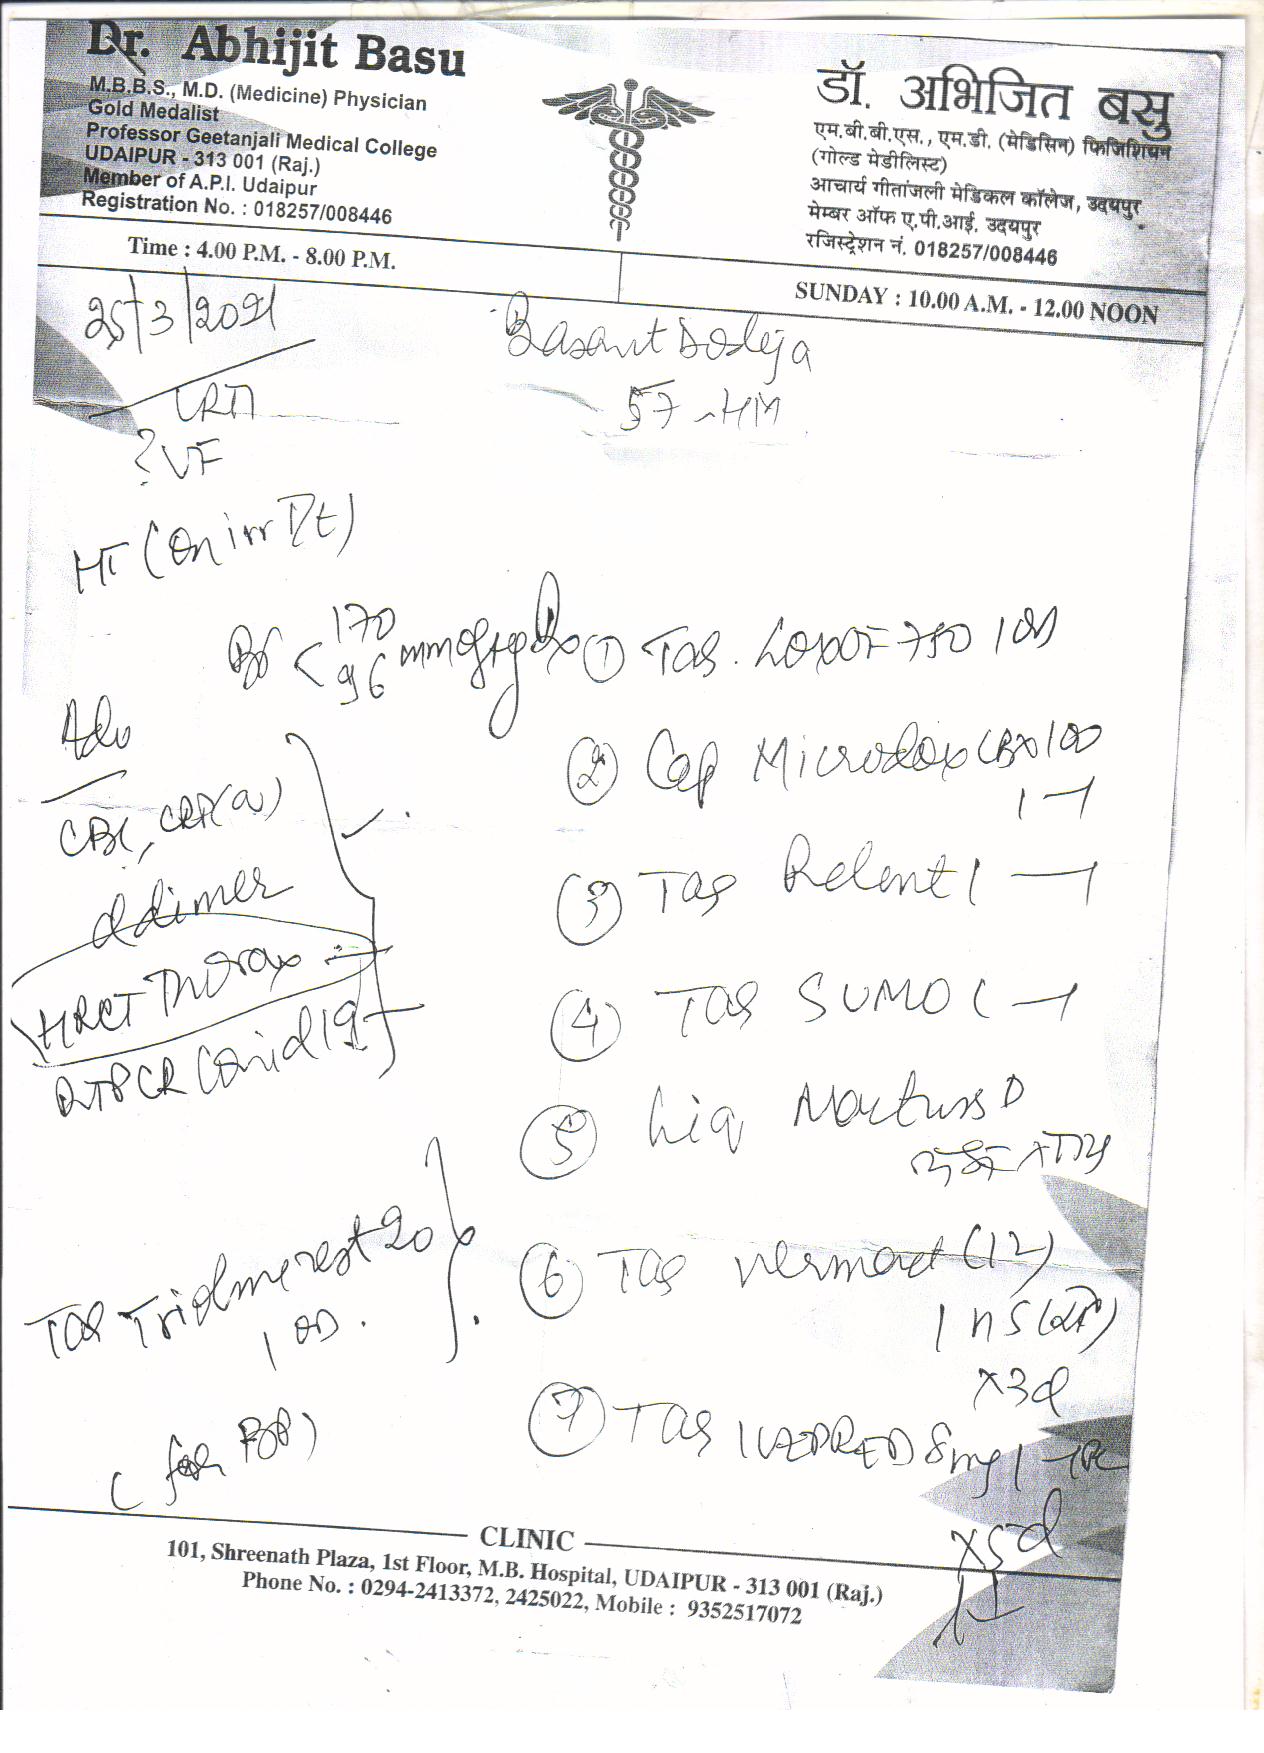 Dr. Abhijit Basu
M.B.B.S., M.D. (Medicine) Physician
Gold Medalist
Professor Geetanjali Medical College
UDAIPUR - 313 001 (Raj.)
Member of A.P.I. Udaipur
Registration No. : 018257/008446
डॉ. अभिजित बसु
एम.बी.बी.एस., एम.डी. (मेडिसिन) फिजिशियन
(गोल्ड मेडीलिस्ट)
आचार्य गीतांजली मेडिकल कॉलेज, उदयपुर
मेम्बर ऑफ ए.पी.आई. उदयपुर
रजिस्ट्रेशन नं. 018257/008446
Time : 4.00 P.M. - 8.00 P.M.
SUNDAY : 10.00 A.M. - 12.00 NOON
25/3/2021
Basant
57
? VF
HT (On irr
170
96 mmofHg
Adv
CBC,
ddimer
HRCT Thorax
RTPCR Covid19
Tab
20
1 OD.
(for BP)
① Tab. 750 1 OD
② Cap Microdox LBX 100
1 — 1
③ Tab Relent 1 — 1
④ Tab SUMO 1 — 1
⑤ Liq D
⑥ Tab (12)
1
x3d
⑦ Tab 8mg 1 — 1
x5d
CLINIC
101, Shreenath Plaza, 1st Floor, M.B. Hospital, UDAIPUR - 313 001 (Raj.)
Phone No. : 0294-2413372, 2425022, Mobile : 9352517072